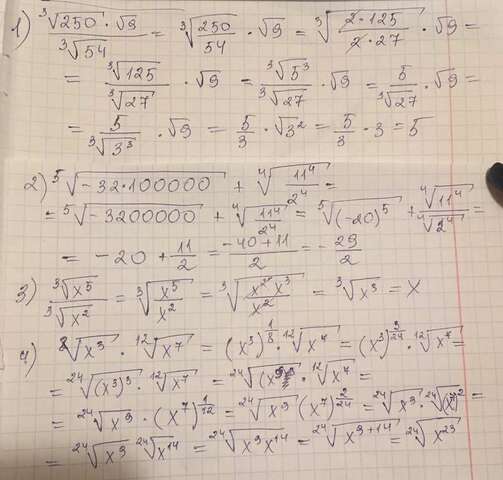 1) ∛250 · √9 / ∛54 = ∛(250/54) · √9 = ∛(2·125 / 2·27) · √9 =
= ∛125 / ∛27 · √9 = ∛5³ / ∛27 · √9 = 5 / ∛27 · √9 =
= 5 / ∛3³ · √9 = 5/3 · √3² = 5/3 · 3 = 5
2) ⁵√(-32·100000) + ⁴√(11⁴/2⁴) =
= ⁵√(-3200000) + ⁴√(11⁴/2⁴) = ⁵√((-20)⁵) + ⁴√11⁴ / ⁴√2⁴ =
= -20 + 11/2 = (-40+11)/2 = -29/2
3) ∛x⁵ / ∛x² = ∛(x⁵/x²) = ∛(x²x³/x²) = ∛x³ = x
4) ⁸√x³ · ¹²√x⁷ = (x³)^(1/8) · ¹²√x⁷ = (x³)^(3/24) · ¹²√x⁷ =
= ²⁴√((x³)³) · ¹²√x⁷ = ²⁴√(x⁹) · ¹²√x⁷ =
= ²⁴√x⁹ · (x⁷)^(1/12) = ²⁴√x⁹ (x⁷)^(2/24) = ²⁴√x⁹ · ²⁴√((x⁷)²) =
= ²⁴√x⁹ ²⁴√x¹⁴ = ²⁴√(x⁹x¹⁴) = ²⁴√(x⁹⁺¹⁴) = ²⁴√x²³